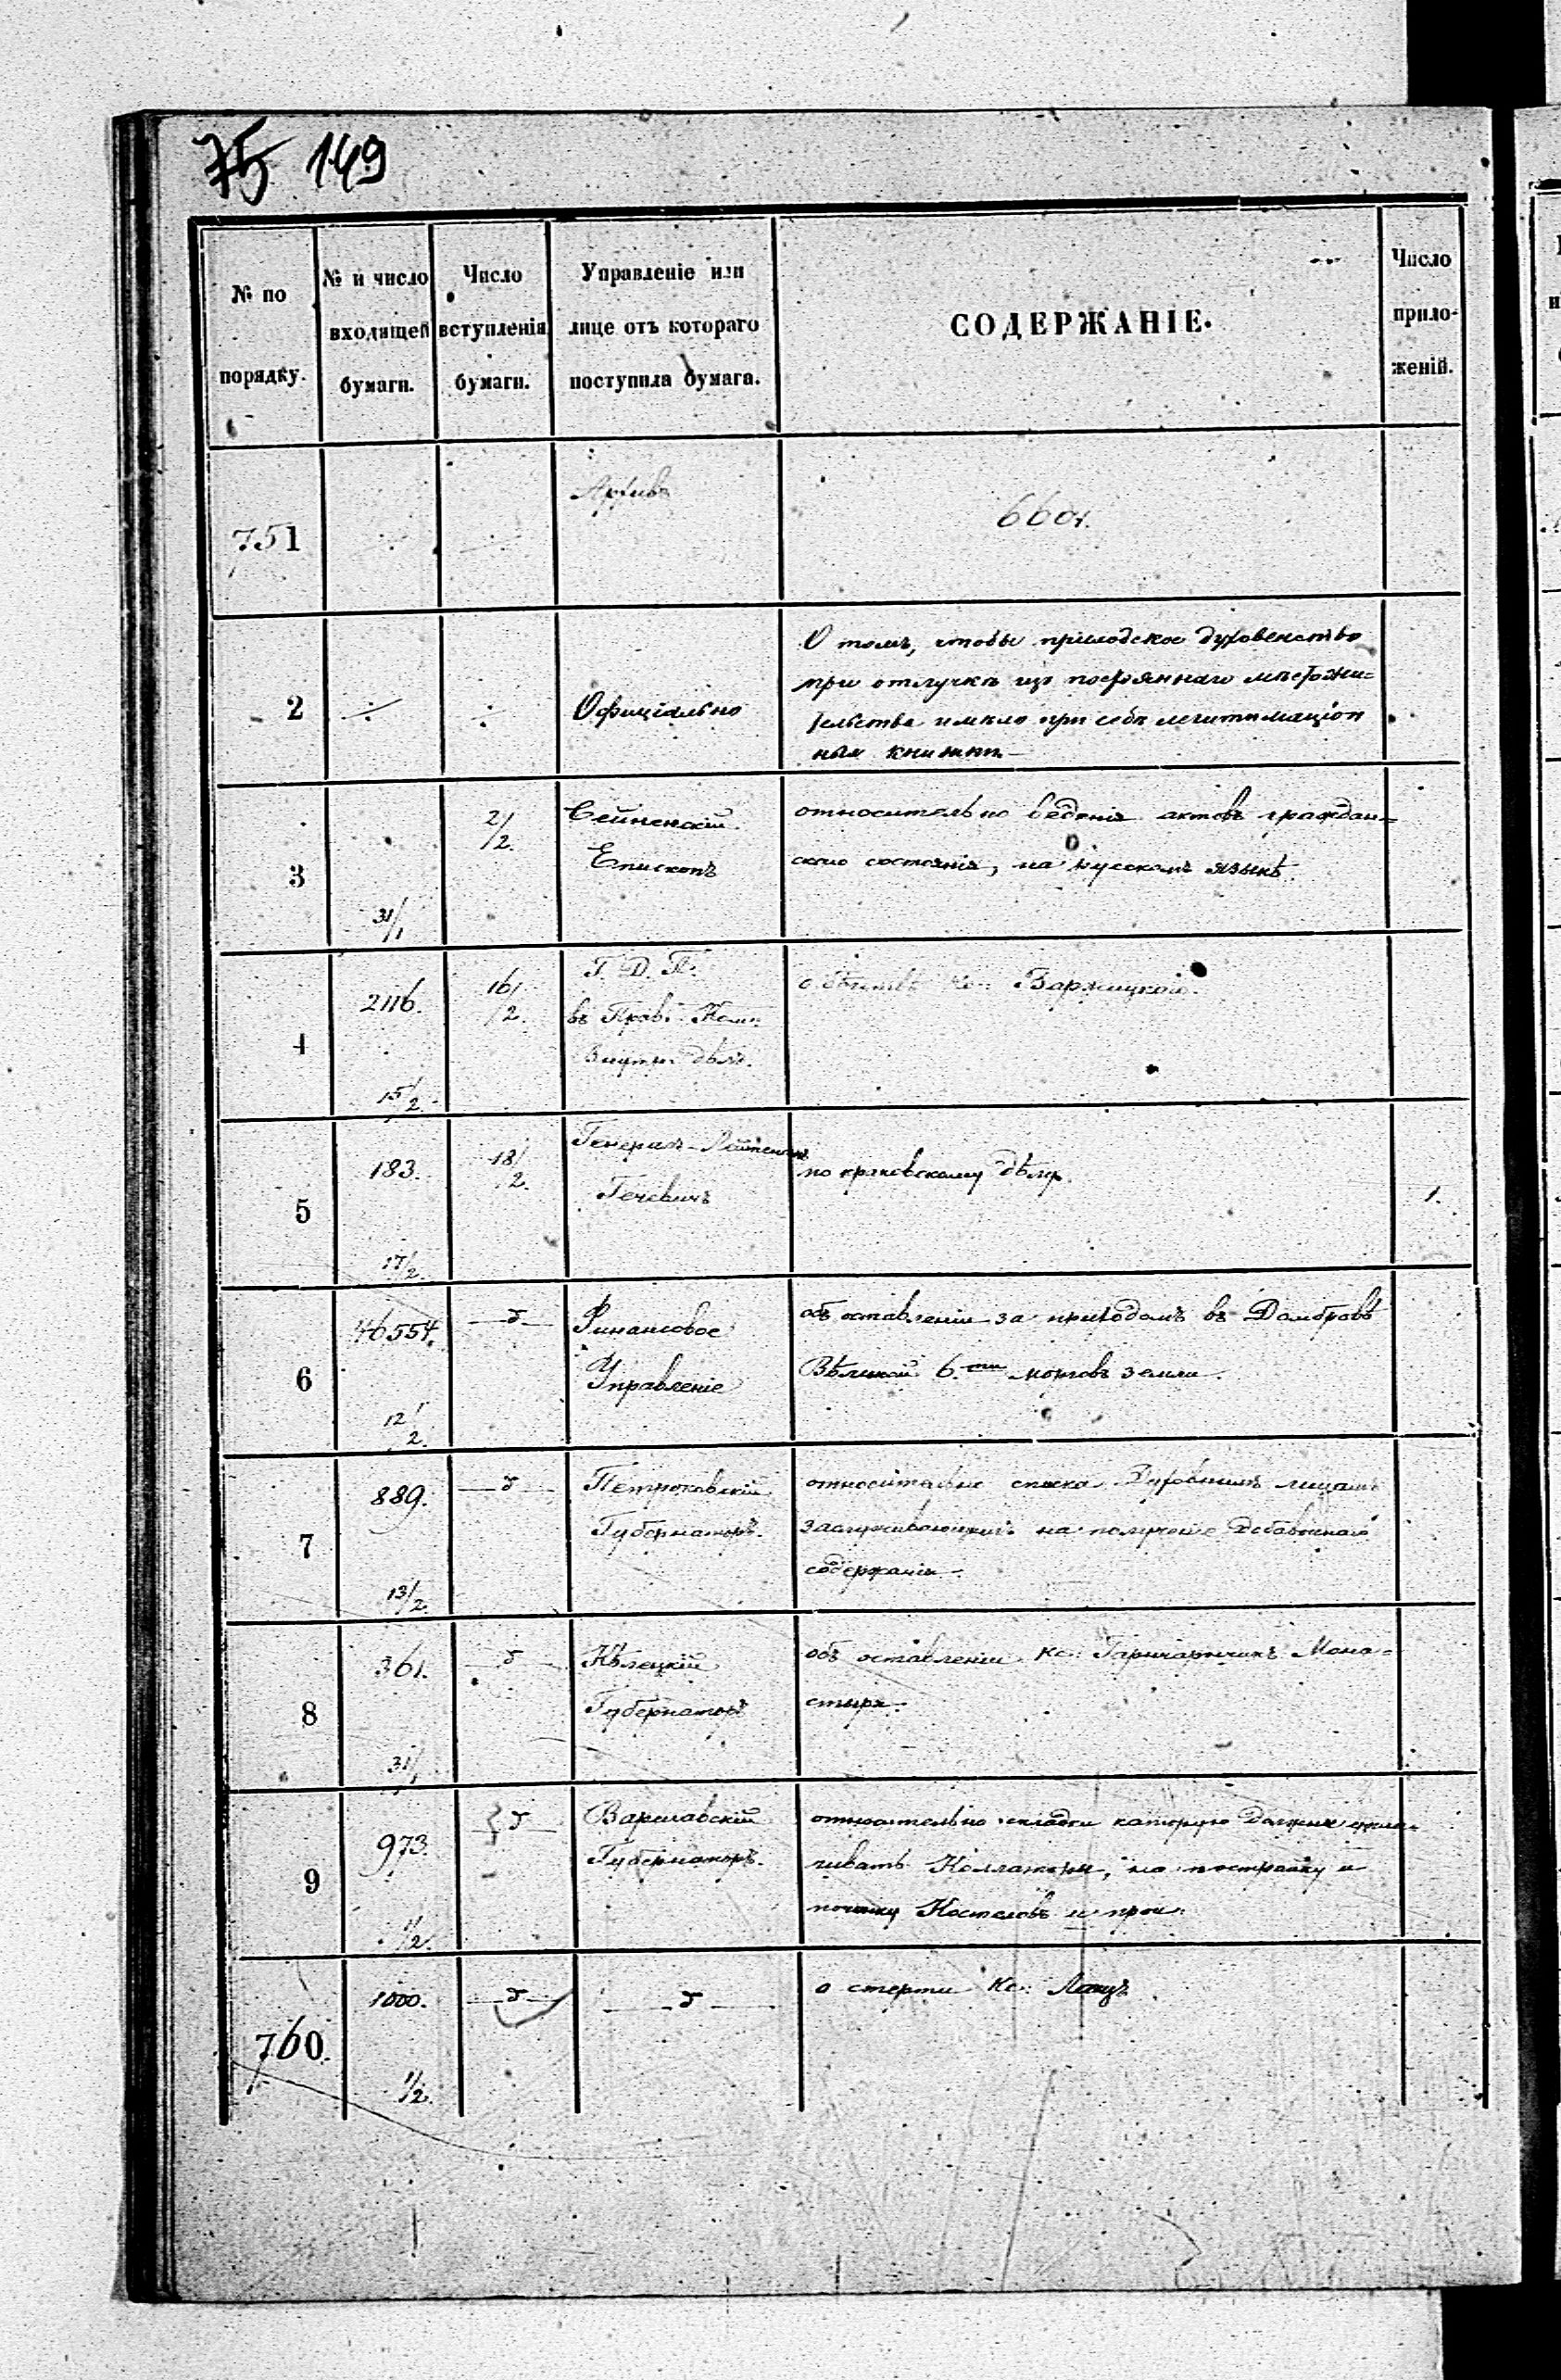 75 149
№ по
порядку.
№ и число
входящей
бумаги.
Число
вступленія
бумаги.
Управленіе или
лице отъ котораго
поступила бумага.
СОДЕРЖАНІЕ.
Число
прило-
женій.
751
Архивъ
2
Офиціально
О томъ, чтобы приходское духовенство
при отлучкѣ изъ постояннаго мѣстожи=
тельства имѣло при себѣ легитимаціон
ныя книжки
3
31/1
2/2.
Сейненскій
Епископъ
относительно веденія актовъ граждан=
скаго состоянія, на русскомъ языкѣ.
4
2116.
15/2.
16/2.
Г. Д. П.
въ Прав. Ком.
Внутр. дѣлъ.
о Кс: Варжицкого.
5
183.
17/2.
18/2.
Генералъ-Лейтенантъ
Гечевичъ
по дѣлу.
1.
6
46554.
12/2.
д
Финансовое
Управленіе
объ оставленіи за приходомъ въ Домбровѣ
Вѣликой 6.ти морговъ земли.
7
889.
13/2.
д
Петроковскій
Губернаторъ.
относительно списка Духовнымъ лицамъ
заслуживающимъ на полученіе добавочнаго
содержанія.
8
361.
31/1
д
Кѣлецкій
Губернаторъ
объ оставленіи Кс: Мона=
стыря.
9
973.
1/2.
д
Варшавскій
Губернаторъ.
относительно складки которую должны упла=
чивать Коллаторы, на постройку и
починку Костеловъ и проч:
760.
1000.
1/2.
д
д
о смерти Кс: